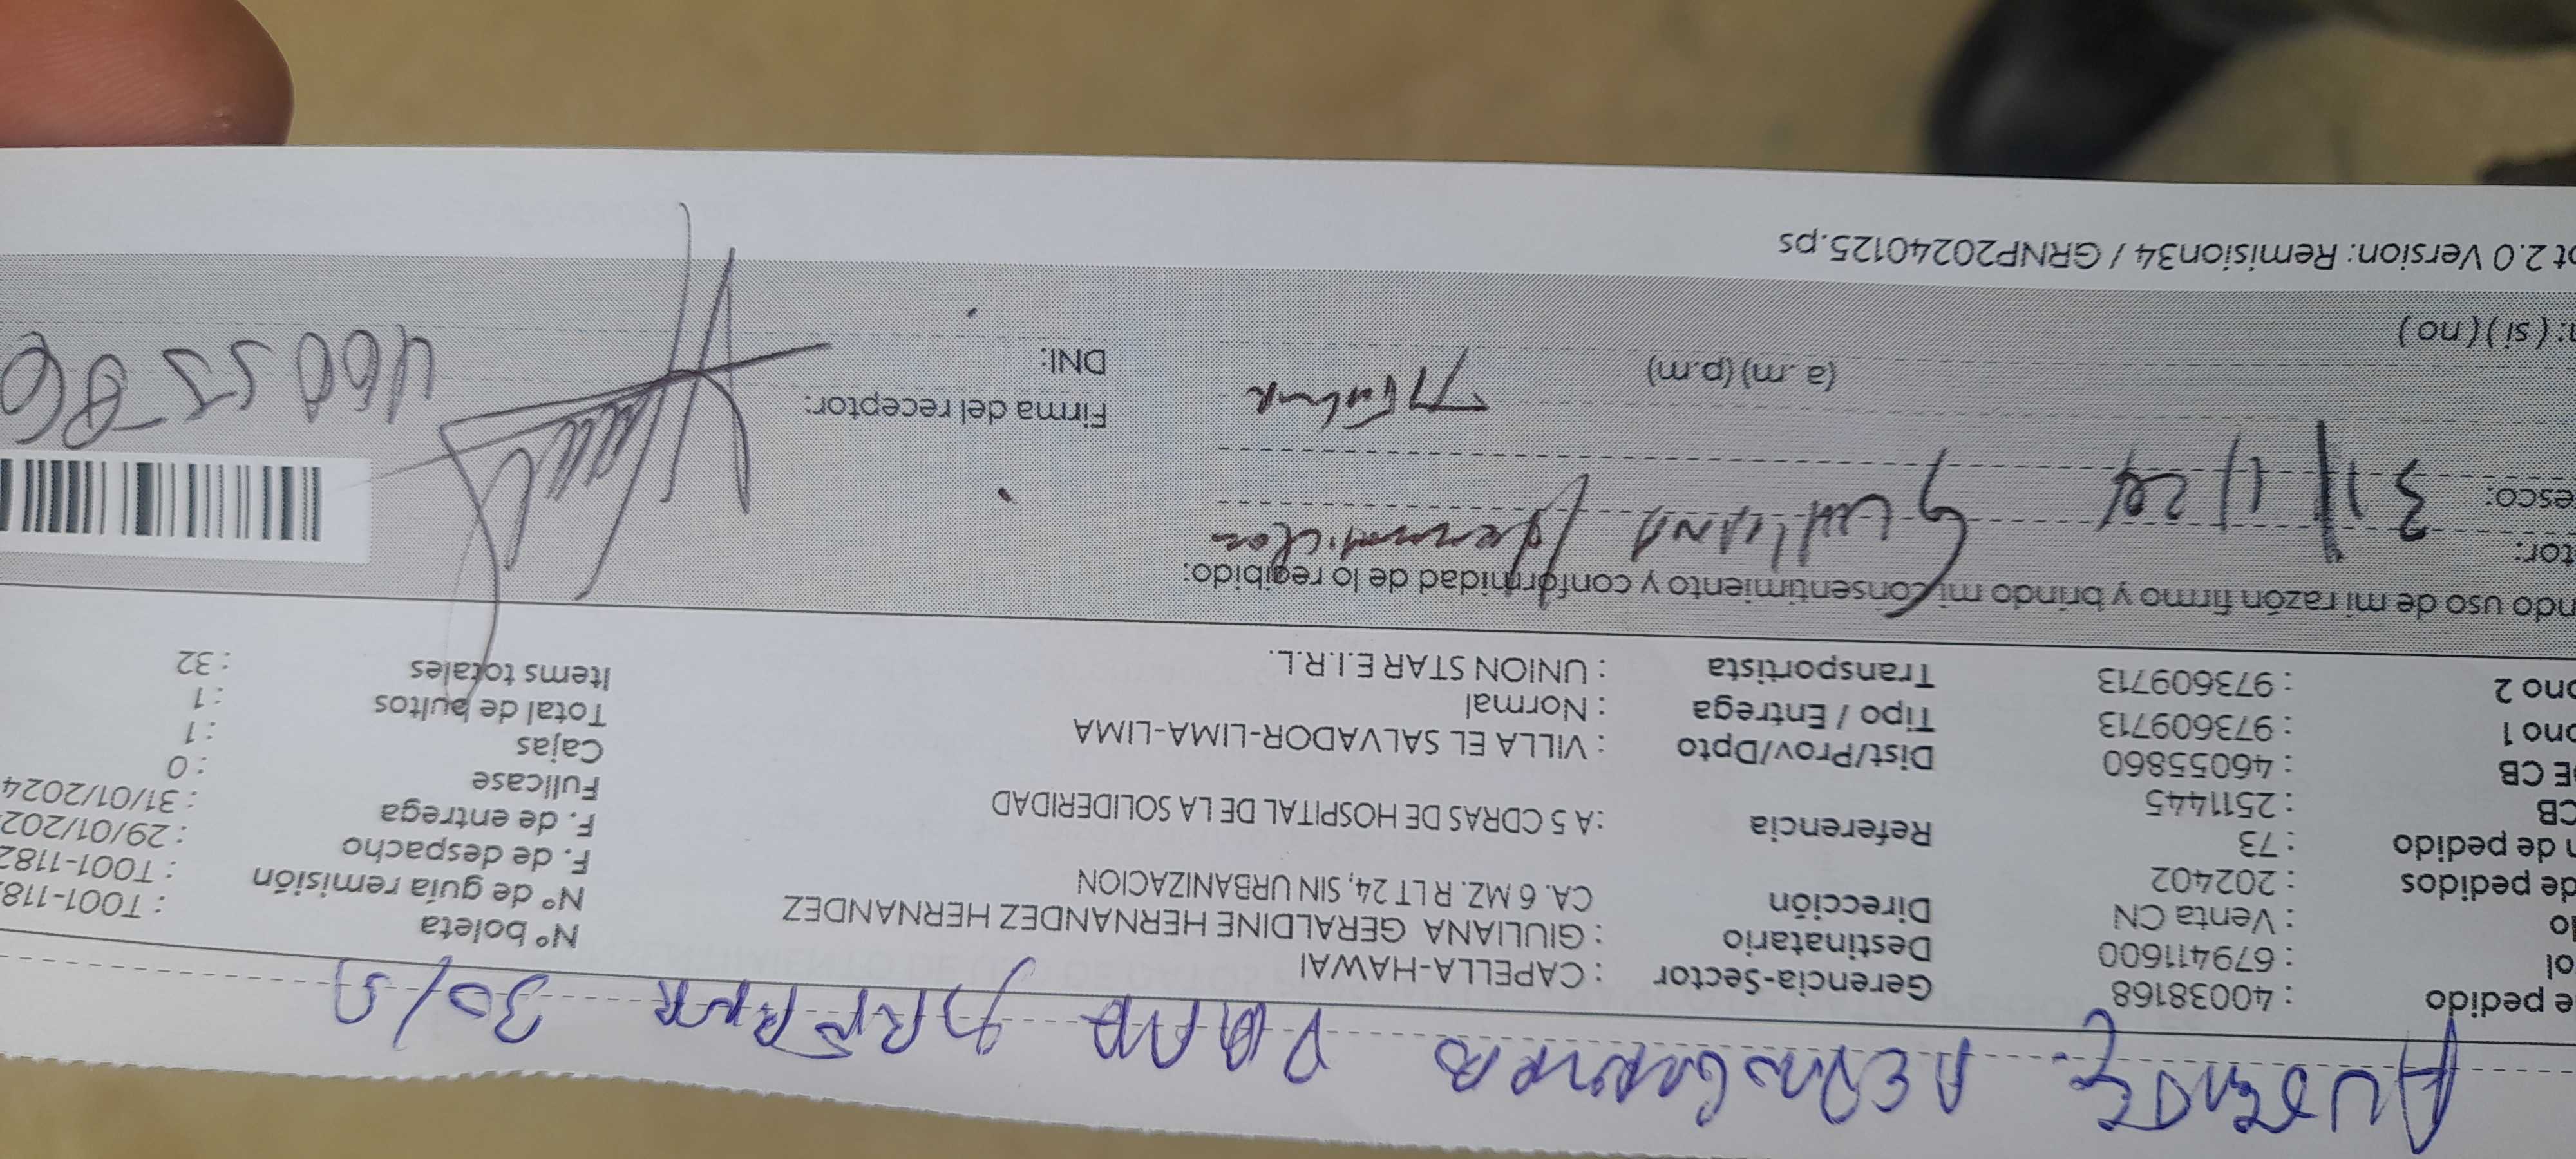 AUSENTE.
e pedido : 40038168 Gerencia-Sector : CAPELLA-HAWAI Nº boleta : T001-118
ol : 679411600 Destinatario : GIULIANA GERALDINE HERNANDEZ HERNANDEZ Nº de guía remisión : T001-1182
lo : Venta CN Dirección CA. 6 MZ. R LT 24, SIN URBANIZACION F. de despacho : 29/01/202
de pedidos : 202402 F. de entrega : 31/01/2024
n de pedido : 73 Referencia : A 5 CDRAS DE HOSPITAL DE LA SOLIDERIDAD Fullcase : 0
CB : 2511445 Cajas : 1
E CB : 46055860 Dist/Prov/Dpto : VILLA EL SALVADOR-LIMA-LIMA Total de bultos : 1
ono 1 : 973609713 Tipo / Entrega : Normal Items totales : 32
ono 2 : 973609713 Transportista : UNION STAR E.I.R.L.
ndo uso de mi razón firmo y brindo mi consentimiento y conformidad de lo recibido:
tor:
esco: 31/1/24
(a .m) (p.m) Firma del receptor:
: ( si ) ( no ) DNI:
pt 2.0 Version: Remision34 / GRNP20240125.ps